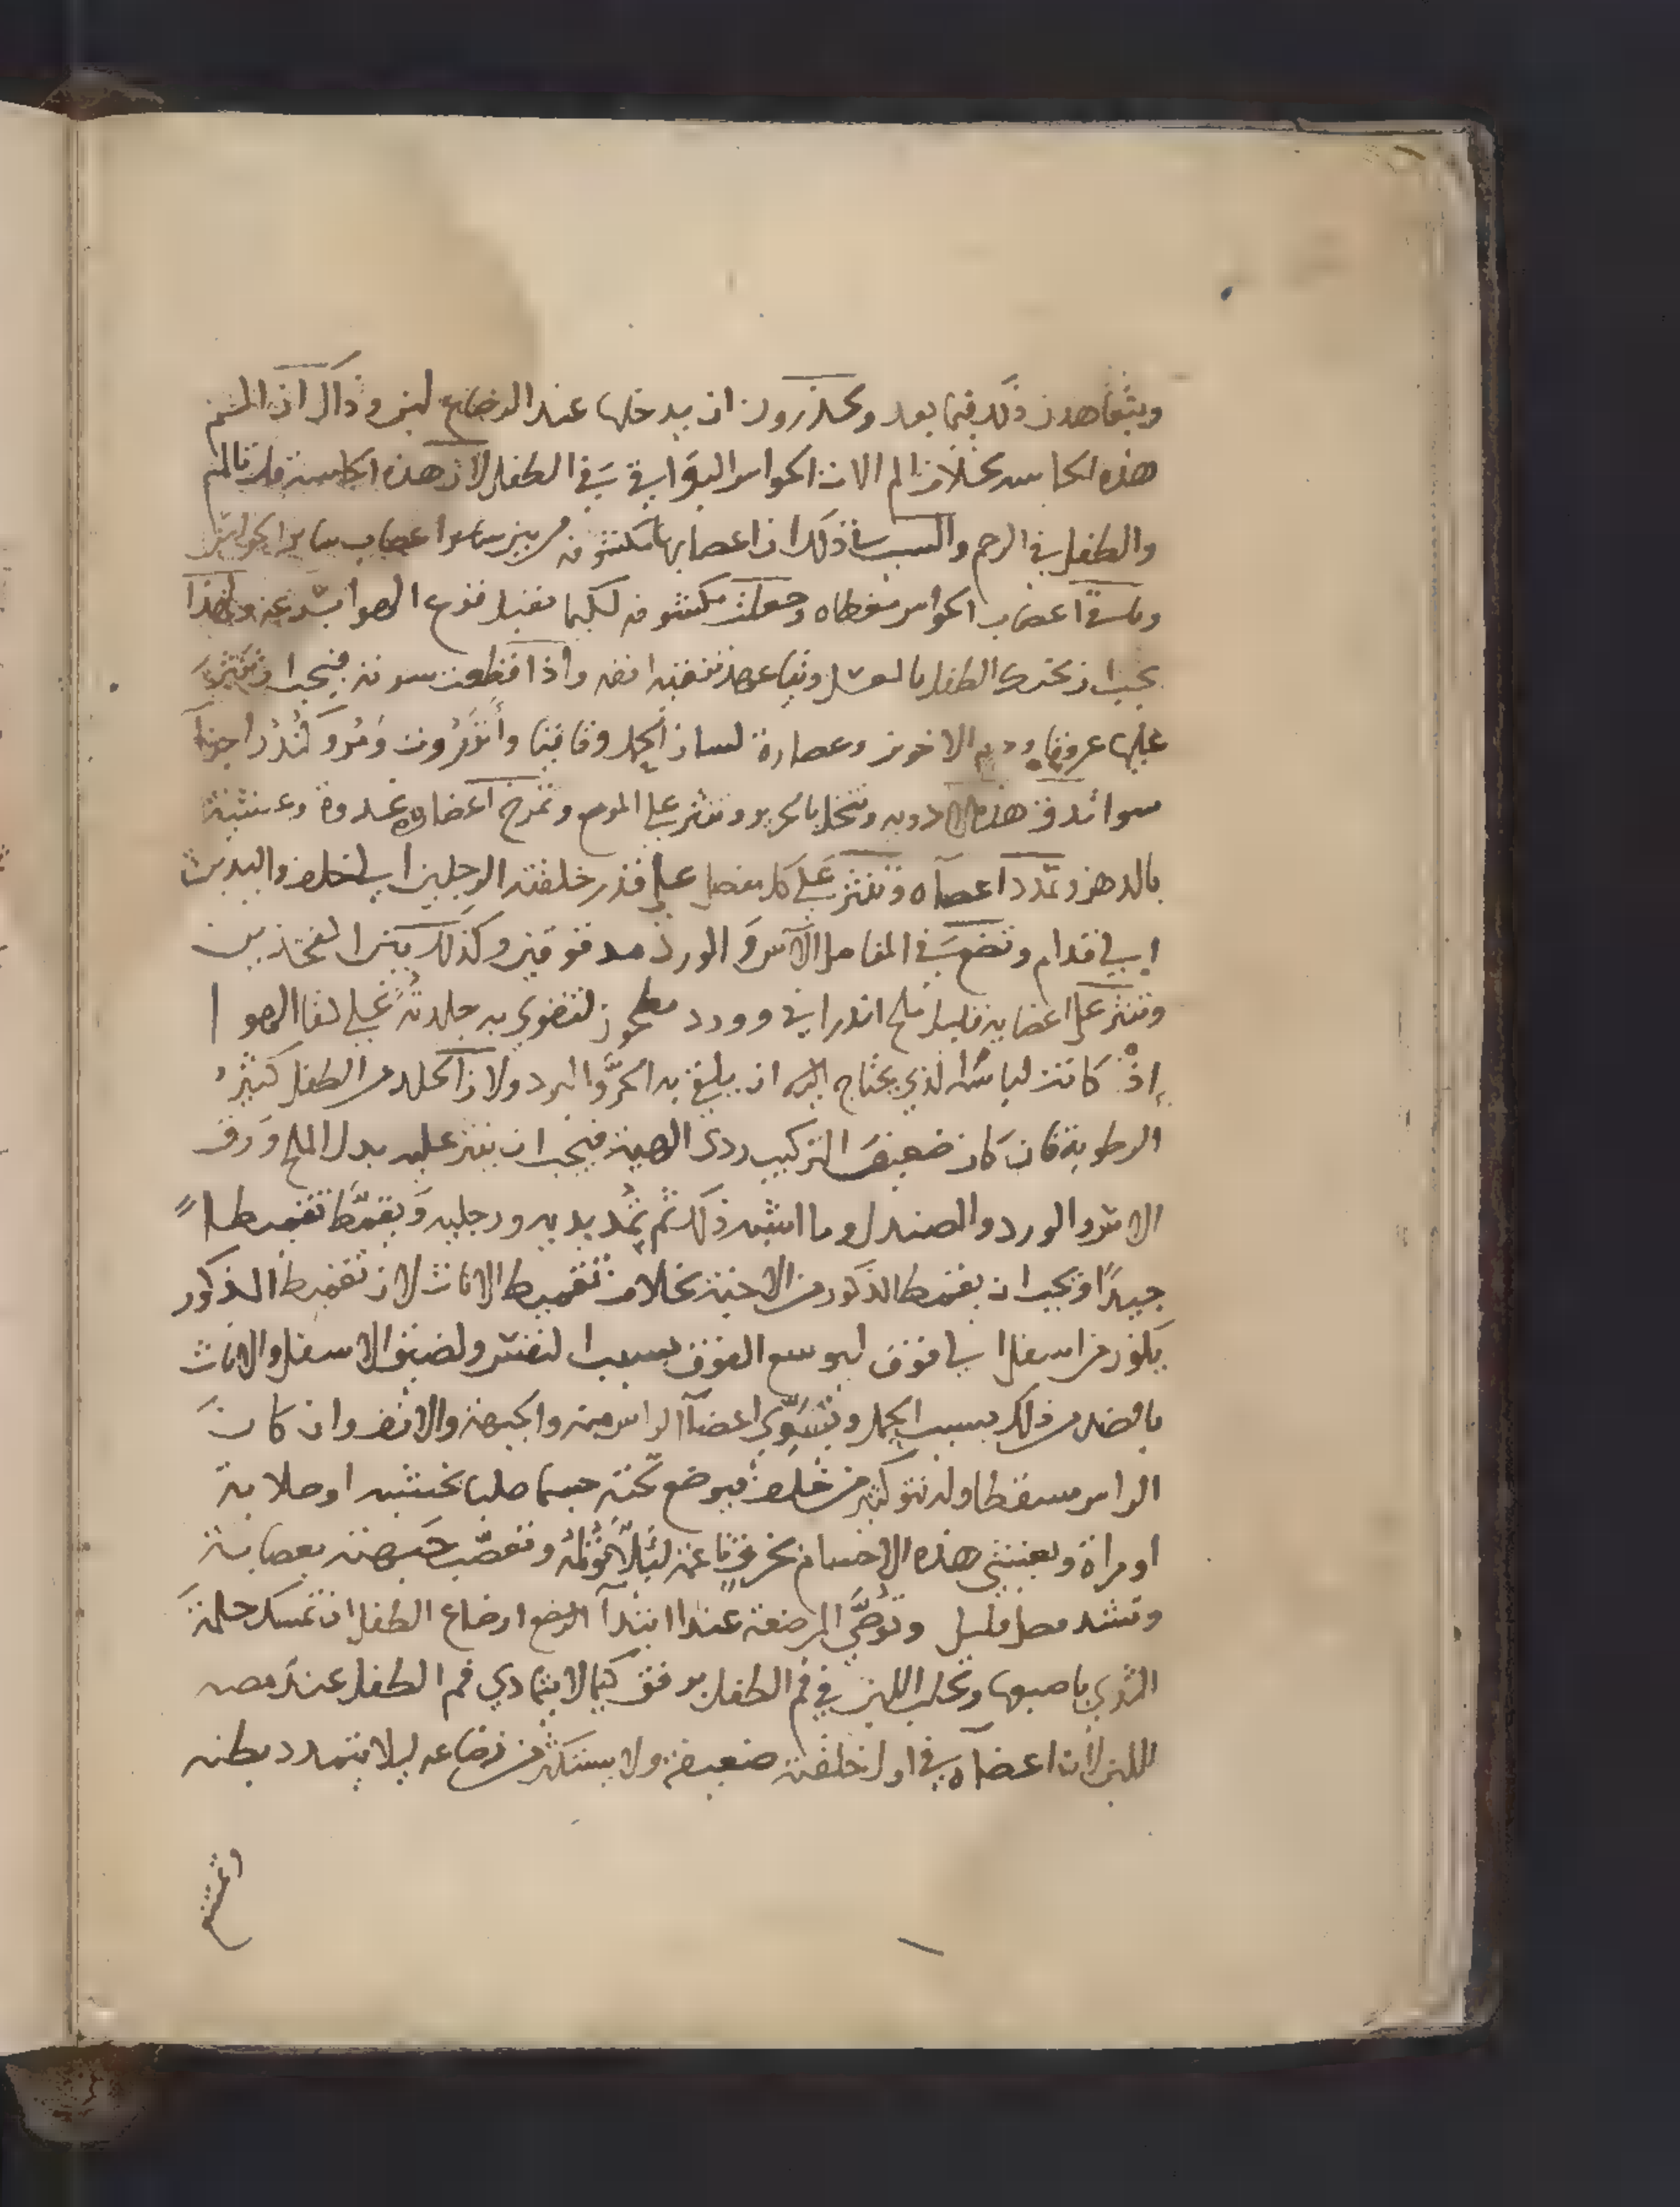 ويتعاهدن ذلك فيما بعد ويحذرون ان يدخلها عند الرضاع لبن وذاك ان الشم
هذه الحاسه بخلاف الم الات الحواس البواقي في الطفل لان هذه الحاسة قل تالم
والطفل في الرحم والسبب في ذلك ان اعصابها مكشوفه من بين ساير اعصاب ساير الحواس
وباقي اعصاب الحواس مغطاه وجعلت مكشوفه لكيما تقبل قرع الهوا بسرعه ولهذا
يجب ان يحنك الطفل بالعسل ويتعاهد تنقية انفه واذا قطعت سرته فيجب ان تنثر
عليها عروقا ودم الاخوين وعصارة لسان الحمل وقاقيا وأنزروت ومر وكندر اجزا
سوا تدق هذه الادويه وتنخل بالحرير وتنثر على الموضع وتمرخ اعضاوه غدوة وعشية
بالدهن وتمدد اعضاه وتغمز على كل مفصل على قدر خلقته الرجلين الى خلف واليدين
الى قدام وتضع في المفاصل الآس والورد مدقوقين وكذلك بين الفخذين
وتنثر على اعضايه قليل ملح اندراني وورد مطحون لتقوى به جلدته على لقا الهوا
إذ كانت لباسه الذي يحتاج اليه ان يلقى به الحر والبرد ولان الجلد من الطفل كثير
الرطوبة فان كان ضعيف التركيب ردى الهية فيجب ان ينثر عليه بدل الملح ورق
الاس والورد والصندل وما اشبه ذلك ثم تمد يديه ورجليه ويقمط تقميطا
جيدا ويجب ان يقمط الذكور من الاجنة بخلاف تقميط الاناث لان تقميط الذكور
يكون من اسفل الى فوق ليوسع الفوق بسبب التنفس ولضيق الاسفل والاناث
بالضد من ذلك بسبب الحمل وتسوي اعضآ الراس منه والجبهة والانف وان كان
الراس مسقطا وله نتو كبير من خلف فيوضع تحته جسما صلبا كخشبه او صلابة
او مراة ويغشى هذه الاجسام بخرق ناعمه ليلا تؤلمه وتعصب جبهته بعصابة
وتشد فصل قليل وتوصى المرضعة عند ابتدآ الرضع ارضاع الطفل ان تمسك حلمة
الثدي باصبعها وتحلب اللبن في فم الطفل برفق كيما لا يتمادي فم الطفل عند مصه
للبن لان اعضاه في اول خلقته ضعيفة ولا يستكثر من رضاعه ليلا يتمدد بطنه